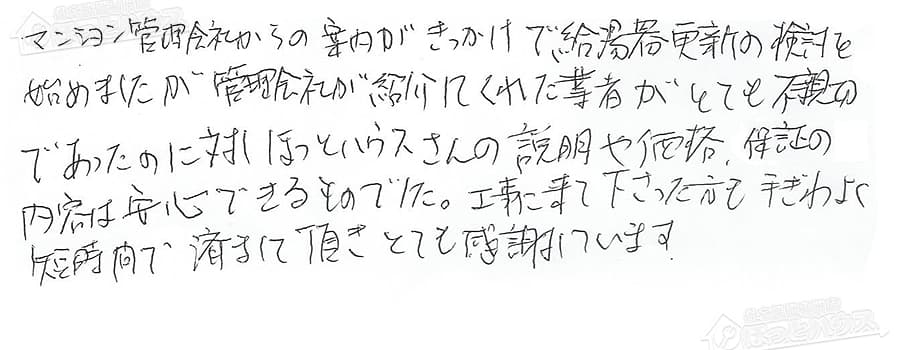 マンション管理会社からの案内がきっかけで給湯器更新の検討を
始めましたが管理会社が紹介してくれた業者がとても不親切
であったのに対しほっとハウスさんの説明や価格、保証の
内容は安心できるものでした。工事に来て下さった方も手ぎわよく
短時間で済ませて頂きとても感謝しています
ほっとハウス